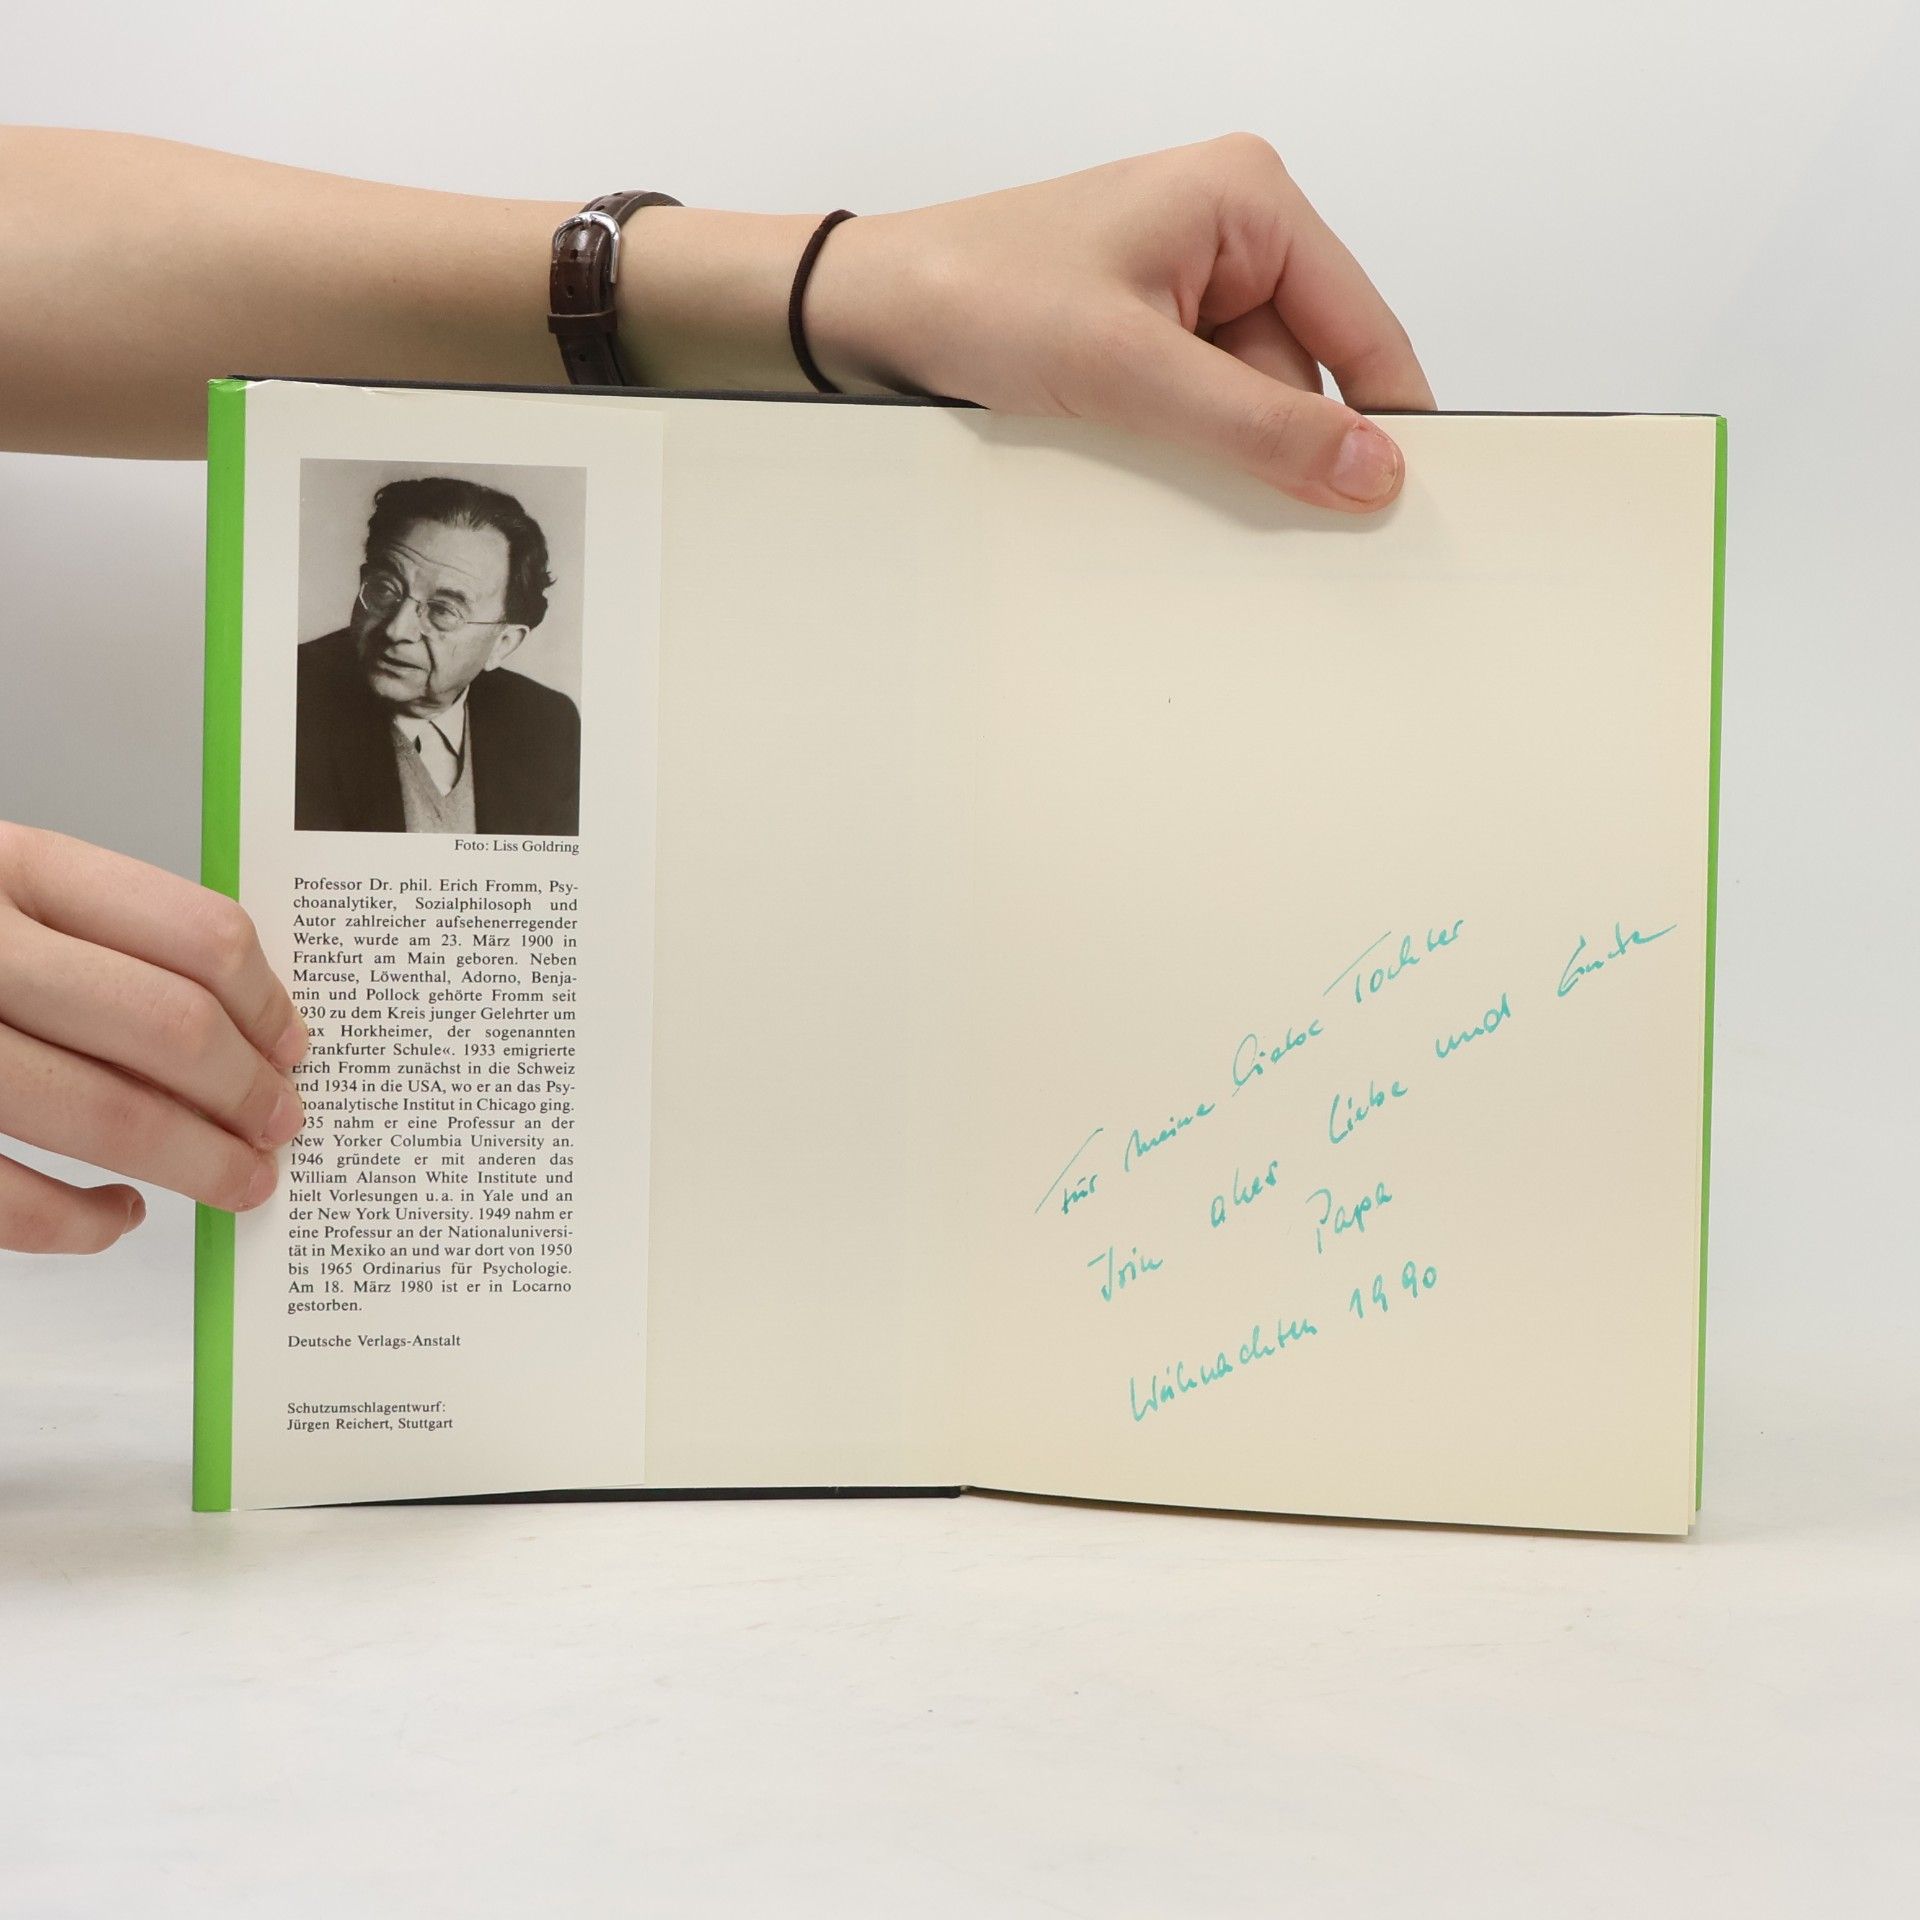 Foto: Liss Goldring
Professor Dr. phil. Erich Fromm, Psy-
choanalytiker, Sozialphilosoph und
Autor zahlreicher aufsehenerregender
Werke, wurde am 23. März 1900 in
Frankfurt am Main geboren. Neben
Marcuse, Löwenthal, Adorno, Benja-
min und Pollock gehörte Fromm seit
1930 zu dem Kreis junger Gelehrter um
Max Horkheimer, der sogenannten
Frankfurter Schule«. 1933 emigrierte
Erich Fromm zunächst in die Schweiz
und 1934 in die USA, wo er an das Psy-
choanalytische Institut in Chicago ging.
1935 nahm er eine Professur an der
New Yorker Columbia University an.
1946 gründete er mit anderen das
William Alanson White Institute und
hielt Vorlesungen u. a. in Yale und an
der New York University. 1949 nahm er
eine Professur an der Nationaluniversi-
tät in Mexiko an und war dort von 1950
bis 1965 Ordinarius für Psychologie.
Am 18. März 1980 ist er in Locarno
gestorben.
Deutsche Verlags-Anstalt
Schutzumschlagentwurf:
Jürgen Reichert, Stuttgart
Für meine liebe Tochter
aller Liebe und
Papa
Weihnachten 1990